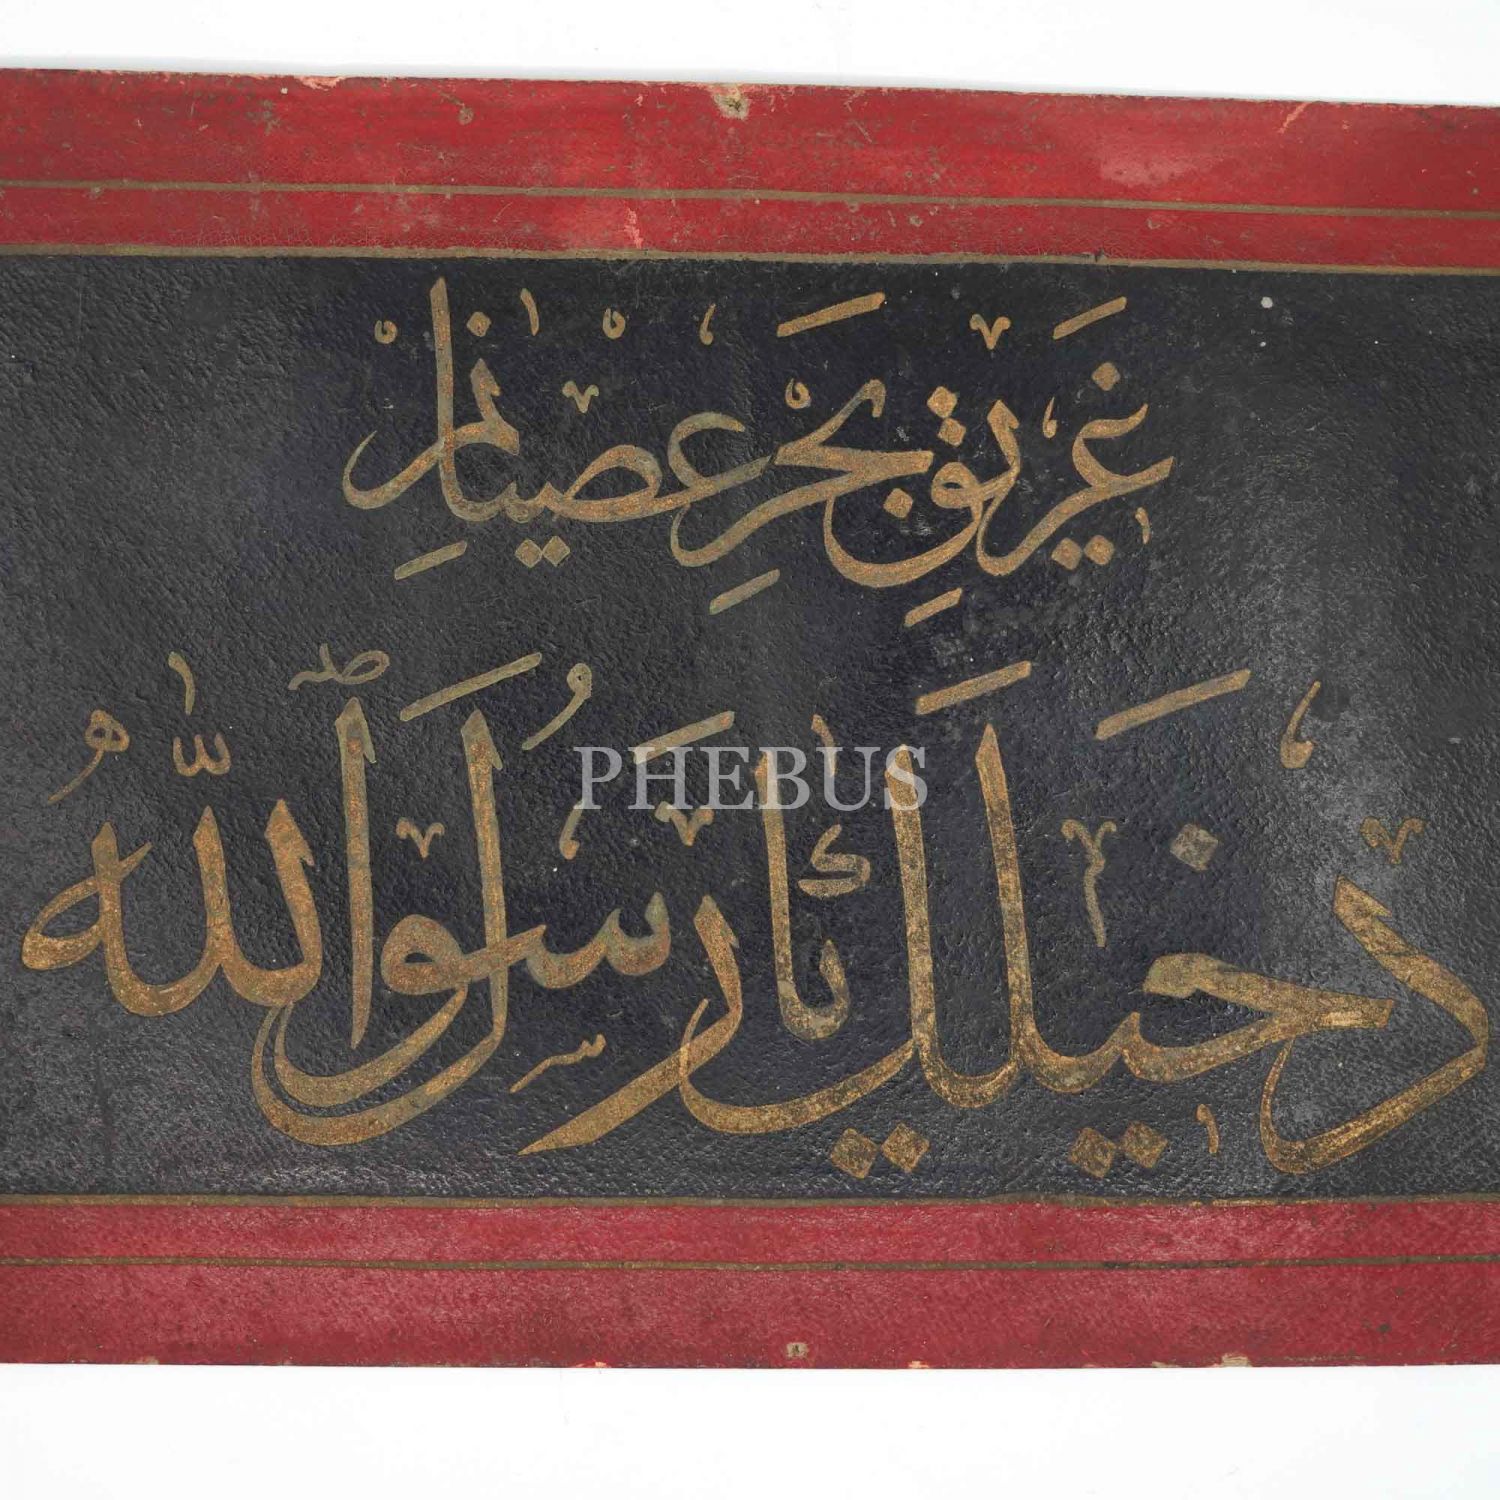 غَرِيقِ بَحْرِ عِصْيَانَمْ
دَخِيلَكْ يَا رَسُولَ اللّٰه
PHEBUS